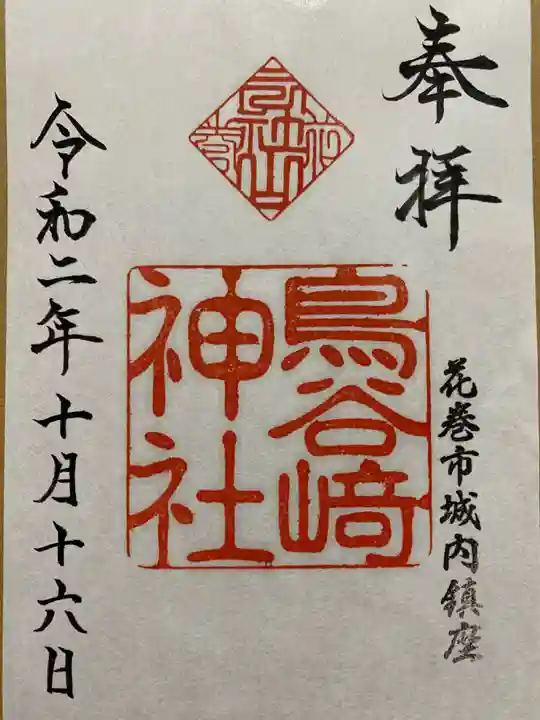 奉拝
花巻市城内鎮座
鳥谷﨑
神社
令和二年十月十六日